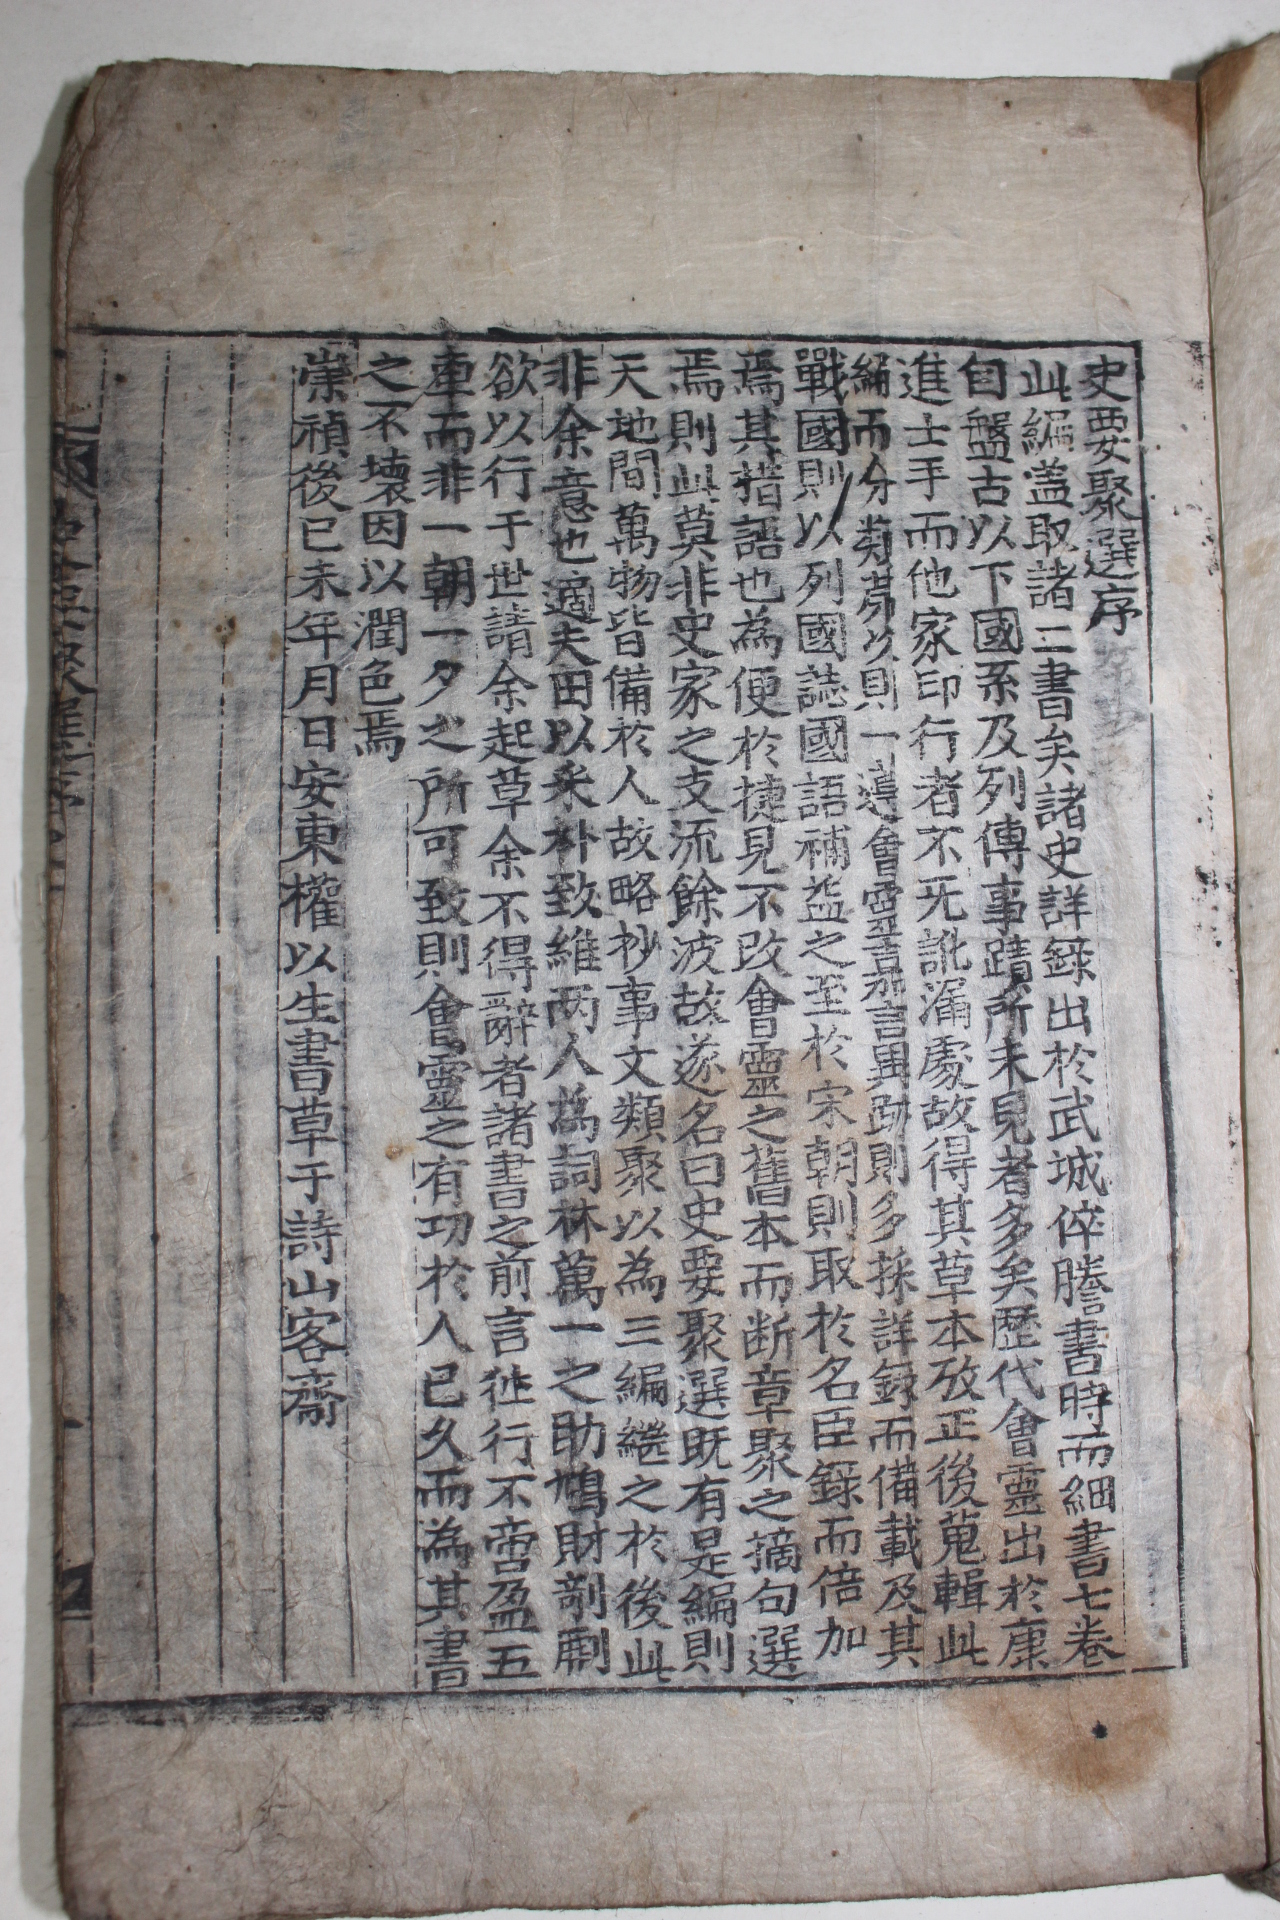 史要聚選序
此編盖取諸二書矣諸史詳錄出於武城倅謄書時而細書七卷
自盤古以下國系及列傳事蹟所未見者多矣歷代會靈出於康
進士手而他家印行者不无訛漏處故得其草本攷正後蒐輯此
編而分類苐以則一遵會靈嘉言異跡則多採詳錄而備載及其
戰國則以列國誌國語補益之至於宋朝則取於名臣錄而倍加
焉其措語也為便於捷見不改會靈之舊本而断章聚之摘句選
焉則此莫非史家之支流餘波故遂名曰史要聚選既有是編則
天地間萬物皆備於人故略抄事文類聚以為三編繼之於後此
非余意也適夫田以采朴致維两人為詞林萬一之助鳩財剞劂
欲以行于世請余起草余不得辭者諸書之前言徃行不啻盈五
車而非一朝一夕之所可致則會靈之有功於人已久而為其書
之不壞因以潤色焉
崇禎後已未年月日安東權以生書草于詩山客齋
史要聚選序